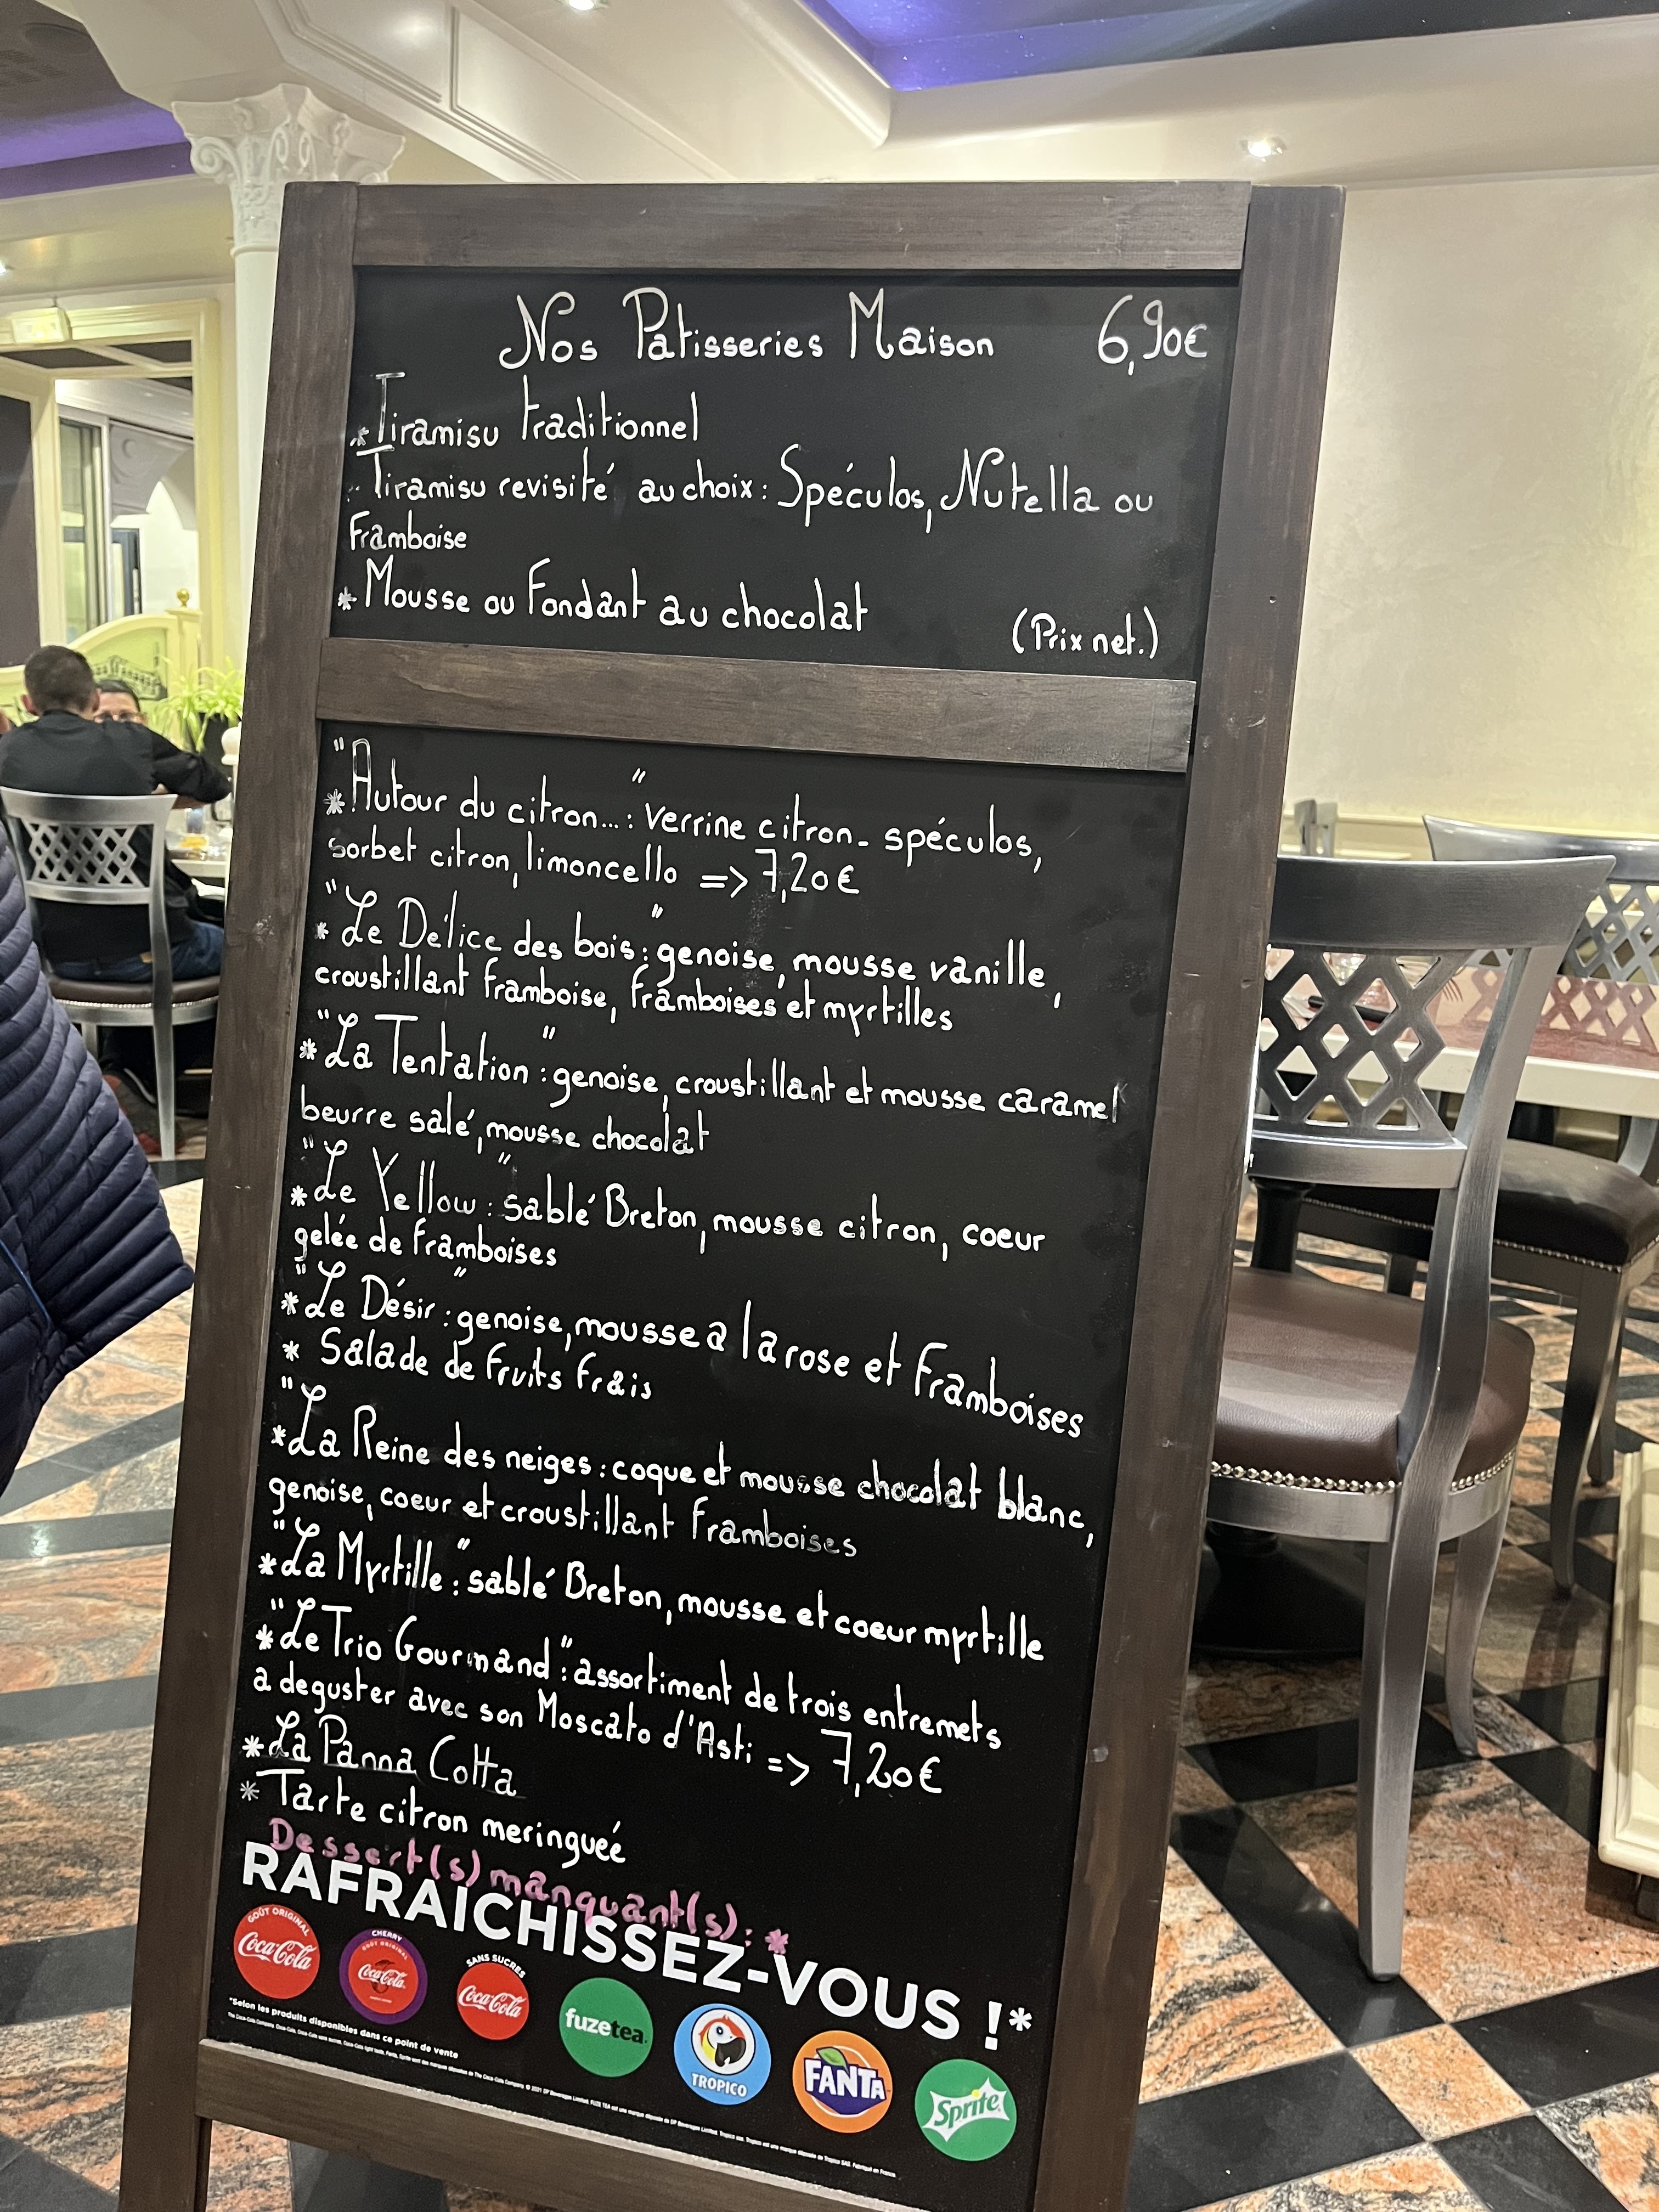 Nos Patisseries Maison 6,90€
*Tiramisu traditionnel
- Tiramisu revisité au choix : Spéculos, Nutella ou
Framboise
*Mousse ou Fondant au chocolat
(Prix net.)
*"Autour du citron..." : verrine citron- spéculos,
sorbet citron, limoncello => 7,20€
*"Le Délice des bois" : genoise, mousse vanille,
croustillant framboise, framboises et myrtilles
*"La Tentation" : genoise, croustillant et mousse caramel
beurre salé, mousse chocolat
*"Le Yellow" : sablé Breton, mousse citron, coeur
gelée de framboises
*"Le Désir" : genoise, mousse a la rose et Framboises
* Salade de fruits frais
*"La Reine des neiges : coque et mousse chocolat blanc,
genoise, coeur et croustillant Framboises
*"La Myrtille" : sablé Breton, mousse et coeur myrtille
*"Le Trio Gourmand" : assortiment de trois entremets
a deguster avec son Moscato d'Asti => 7,20€
*La Panna Cotta
* Tarte citron meringuée
Dessert(s) manquant(s) : *
RAFRAICHISSEZ-VOUS !*
GOÛT ORIGINAL
Coca-Cola
CHERRY
GOÛT ORIGINAL
Coca-Cola
SANS SUCRES
Coca-Cola
fuzetea
TROPICO
FANTA
Sprite
*Selon les produits disponibles dans ce point de vente